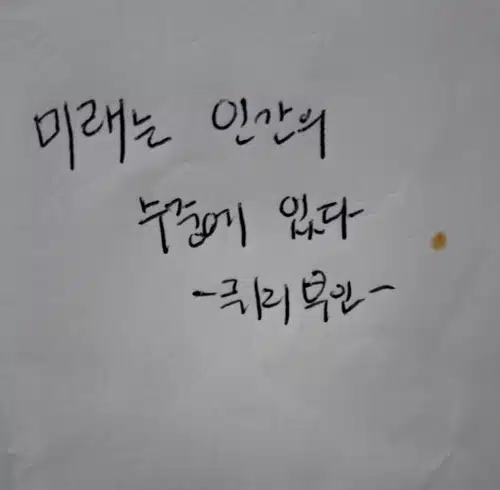 미래는 인간의
수중에 있다
-퀴리 부인-